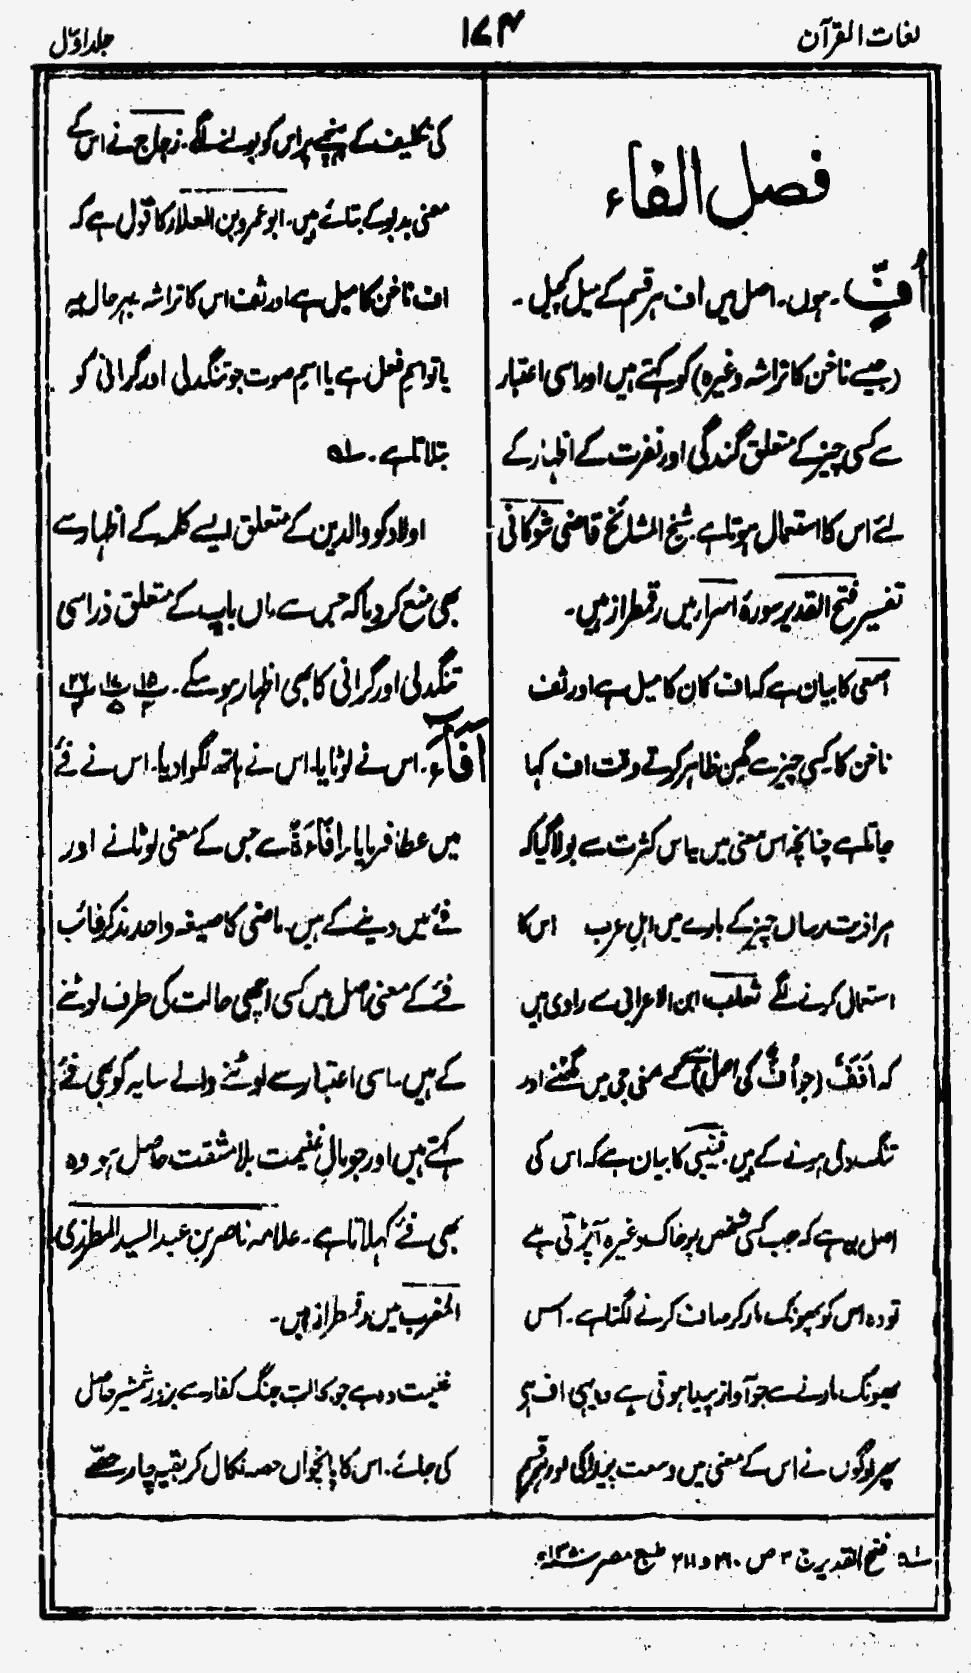 لغات القرآن
۱۷۴
جلد اوّل
فصل الفاء
اُفٍّ ۔ ہوں۔ اصل میں اف ہر قسم کے میل کچیل ۔
(جیسے ناخن کا تراشہ وغیرہ) کو کہتے ہیں اور اسی اعتبار
سے کسی چیز کے متعلق گندگی اور نفرت کے اظہار کے
لئے اس کا استعمال ہوتا ہے۔ شیخ المشائخ قاضی شوکانی
تفسیر فتح القدیر سورۃ اسراء میں رقمطراز ہیں۔
اصمعی کا بیان ہے کہ اف کان کا میل ہے اور ثف
ناخن کا کسی چیز سے گھن ظاہر کرتے وقت اف کہا
جاتا ہے چنانچہ اس معنی میں یہ اس کثرت سے بولا گیا کہ
ہر اذیت رساں چیز کے بارے میں اہل عرب اس کا
استعمال کرنے لگے ثعلب ابن الاعرابی سے راوی ہیں
کہ اَفَفٌ (جو اُفٌّ کی اصل ہے) کے معنی جی میں گھٹنے اور
تنگدلی ہونے کے ہیں۔ قتیبی کا بیان ہے کہ اس کی
اصل یہ ہے کہ جب کسی شخص پر خاک وغیرہ آپڑتی ہے
تو وہ اس کو پھونک مار کر صاف کرنے لگتا ہے۔ اس
پھونک مارنے سے جو آواز پیدا ہوتی ہے وہی اف ہے
پھر لوگوں نے اس کے معنی میں وسعت پیدا کی اور ہر قسم
کی تکلیف کے پہنچنے پر اس کو بولنے لگے۔ زجاج نے اس کے
معنی بدبو کے بتائے ہیں۔ ابو عمرو بن العلاء کا قول ہے کہ
اف ناخن کا میل ہے اور ثف اس کا تراشہ بہرحال یہ
یا تو اسم فعل ہے یا اسم صوت جو تنگدلی اور گرانی کو
بتلاتا ہے۔ ؎۱
اولاد کو والدین کے متعلق ایسے کلمہ کے اظہار سے
بھی منع کر دیا کہ جس سے ماں باپ کے متعلق ذرا سی
تنگدلی اور گرانی کا بھی اظہار ہو سکے۔ پ۱۵ ۲ پ۱۷ ۵ پ۲۶ ۲
اَفَآءَ ۔ اس نے لوٹایا۔ اس نے ہاتھ لگوا دیا۔ اس نے فئے
میں عطا فرمایا۔ اِفَآءَۃٌ سے جس کے معنی لوٹانے اور
فئے میں دینے کے ہیں۔ ماضی کا صیغہ واحد مذکر غائب
فئے کے معنی اصل میں کسی اچھی حالت کی طرف لوٹنے
کے ہیں۔ اسی اعتبار سے لوٹنے والے سایہ کو بھی فئے
کہتے ہیں اور جو مال غنیمت بلا مشقت حاصل ہو وہ
بھی فئے کہلاتا ہے۔ علامہ ناصر بن عبد السید المطرزی
المغرب میں رقمطراز ہیں۔
غنیمت وہ ہے جو بحالت جنگ کفار سے بزور شمشیر حاصل
کی جائے۔ اس کا پانچواں حصہ نکال کر بقیہ چار حصّے
؎۱ فتح القدیر ج ۳ ص ۲۱۰ و ۲۱۱ طبع مصر ۱۳۵۰ھ